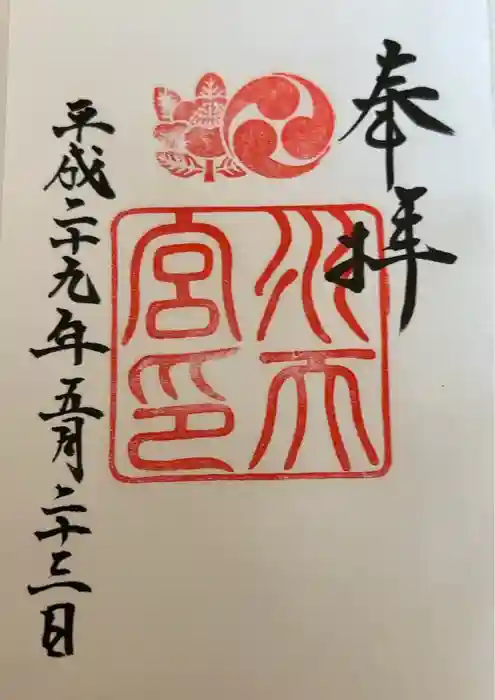 奉拝
水天宮印
平成二十九年五月二十三日